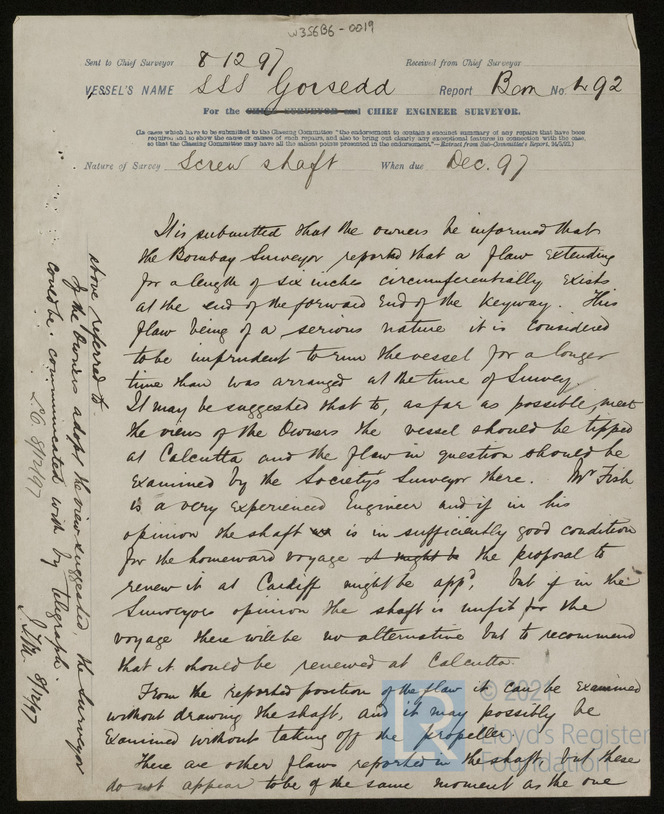 W3S6B6-0019
Sent to Chief Surveyor 8.12.97 Received from Chief Surveyor
VESSEL'S NAME SSS Gorsedd Report Bom No. 492
For the CHIEF SURVEYOR and CHIEF ENGINEER SURVEYOR.
(In cases which have to be submitted to the Classing Committee "the endorsement to contain a succinct summary of any repairs that have been
required, and to show the cause or causes of such repairs, and also to bring out clearly any exceptional features in connection with the case,
so that the Classing Committee may have all the salient points presented in the endorsement."—Extract from Sub-Committee's Report,
Nature of Survey Screw shaft When due Dec. 97
It is submitted that the owners be informed that
the Bombay Surveyor reported that a flaw extending
for a length of six inches circumferentially exists
at the end of the forward end of the keyway. This
flaw being of a serious nature it is considered
to be imprudent to run the vessel for a longer
time than was arranged at the time of Survey.
It may be suggested that to, as far as possible meet
the views of the Owners the vessel should be tipped
at Calcutta and the flaw in question should be
examined by the Society's Surveyor there. Mr Fish
is a very experienced Engineer and if in his
opinion the shaft is in sufficiently good condition
for the homeward voyage it might be the proposal to
renew it at Cardiff might be appd, but if in the
Surveyors opinion the shaft is unfit for the
voyage there will be no alternative but to recommend
that it should be renewed at Calcutta.
From the reported position of the flaw it can be examined
without drawing the shaft, and it may possibly be
examined without taking off the propeller
There are other flaws reported in the shaft, but these
do not appear to be of the same moment as the one
above referred to.
If the Owners adopt the view suggested, the Surveyor
could be communicated with by telegraph.
8/12/97
8/12/97
© 2021
Lloyd's Register
Foundation
LR